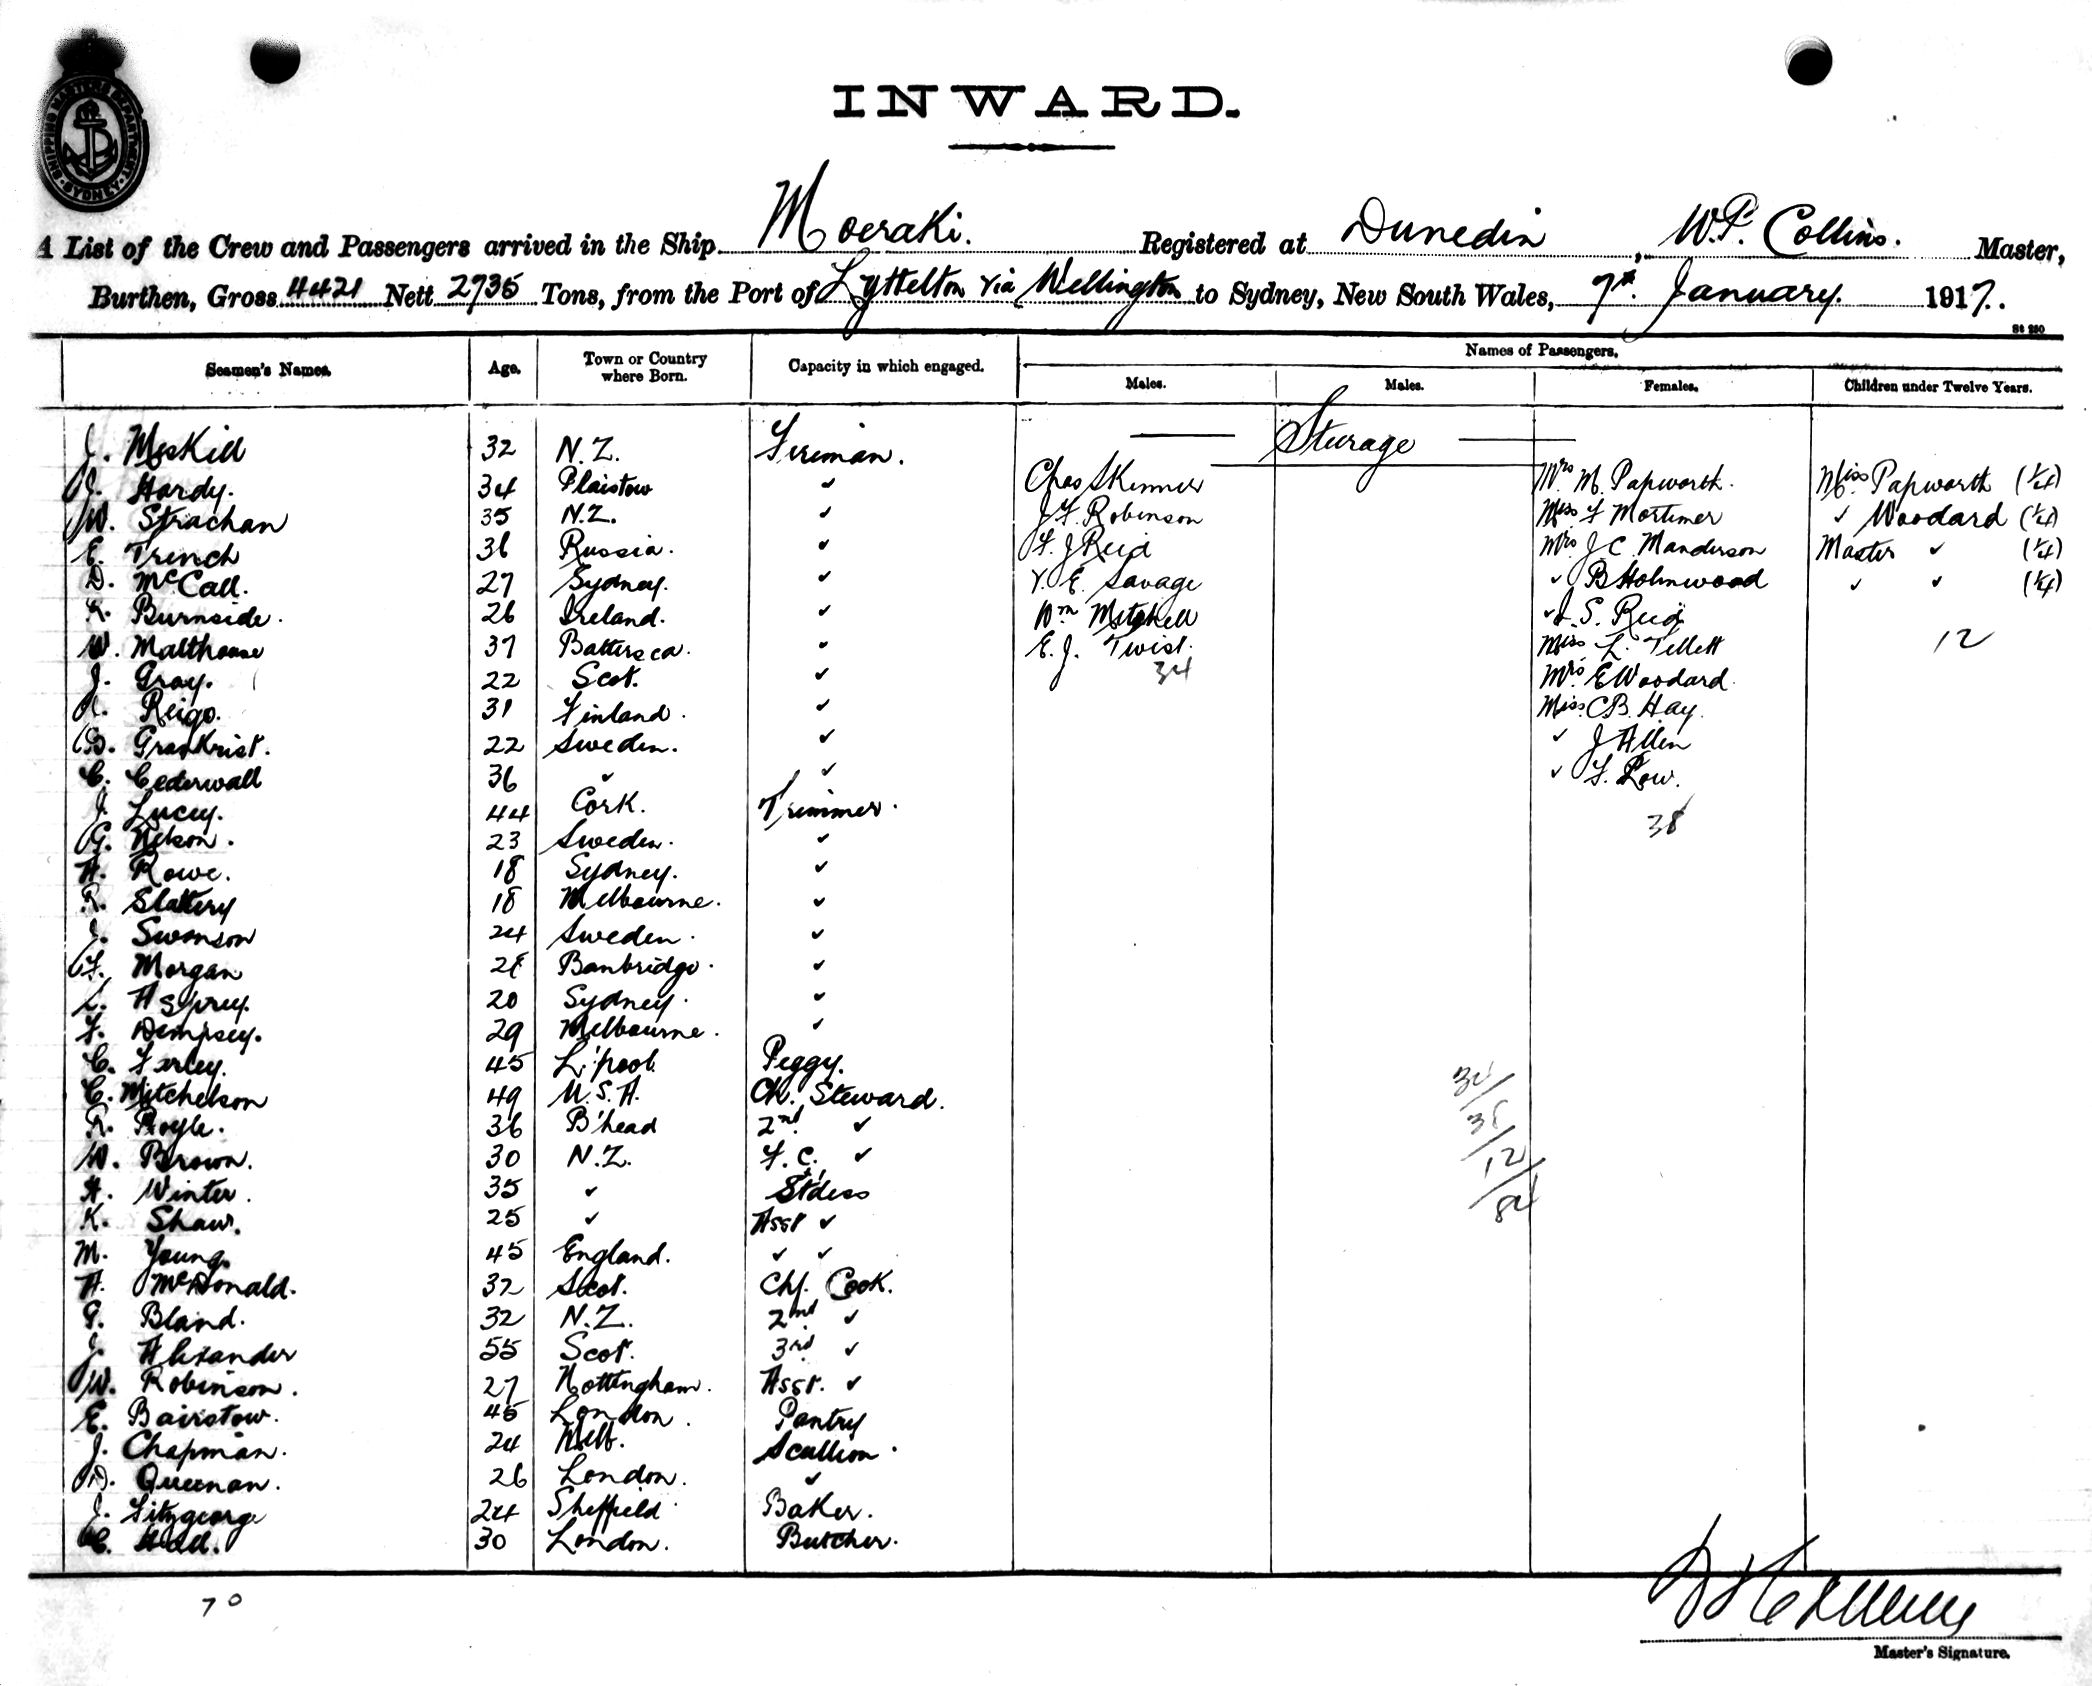 SHIPPING MASTER'S DEPARTMENT. SYDNEY
INWARD.
A List of the Crew and Passengers arrived in the Ship Moeraki. Registered at Dunedin, W.P. Collins. Master,
Burthen, Gross 4421 Nett 2735 Tons, from the Port of Lyttelton via Wellington to Sydney, New South Wales, 7th January. 1917.
St 250
Seamen's Names. Age. Town or Country where Born. Capacity in which engaged. Names of Passengers.
Males. Males. Females. Children under Twelve Years.
J. Meskill 32 N.Z. Fireman. Sturage
J. Hardy. 34 Plaistow " Chas Skinner Mrs M. Papworth. Miss Papworth (1/4)
W. Strachan 35 N.Z. " J F Robinson Miss F Mortimer " Woodard (1/4)
E. Trench 36 Russia. " F. J Reid Mrs J C. Manderson Master " (1/4)
D. McCall. 27 Sydney. " V. E. Savage " B Holmwood " " (1/4)
R. Burnside. 26 Ireland. " Wm Mitchell " J. S. Reid
W. Malthouse 37 Battersea. " E. J. Twist. Miss L. Tellett 12
J. Gray. 22 Scot. " 34 Mrs E Woodard
A. Reigo. 31 Finland. " Miss C B. Hay.
B. Grankrist. 22 Sweden. " " J Allen
C. Cederwall 36 " " " F. Row.
J. Lucey. 44 Cork. Trimmer. 38
G. Nelson. 23 Sweden. "
A. Rowe. 18 Sydney. "
R. Slattery 18 Melbourne. "
J. Swanson 24 Sweden. "
F. Morgan 28 Banbridge. "
L. Asprey. 20 Sydney. "
F. Dempsey. 29 Melbourne. "
C. Farley. 45 L'pool. Peggy.
C. Mitchelson 49 U.S.A. Ch. Steward. 34
R. Royle. 36 B'head 2nd " 38
W. Brown. 30 N.Z. F.C. " 12
A. Winter. 35 " St'dess 84
K. Shaw. 25 " Asst "
M. Young. 45 England. " "
A. McDonald. 32 Scot. Chf. Cook.
G. Bland. 32 N.Z. 2nd "
J. Alexander 55 Scot. 3rd "
W. Robinson. 27 Nottingham. Asst. "
E. Bairstow. 45 London. Pantry
J. Chapman. 24 Melb. Scullion.
D. Queenan. 26 London. "
J. Fitzgeorge 24 Sheffield Baker.
C. Hall. 30 London. Butcher.
70
Master's Signature.